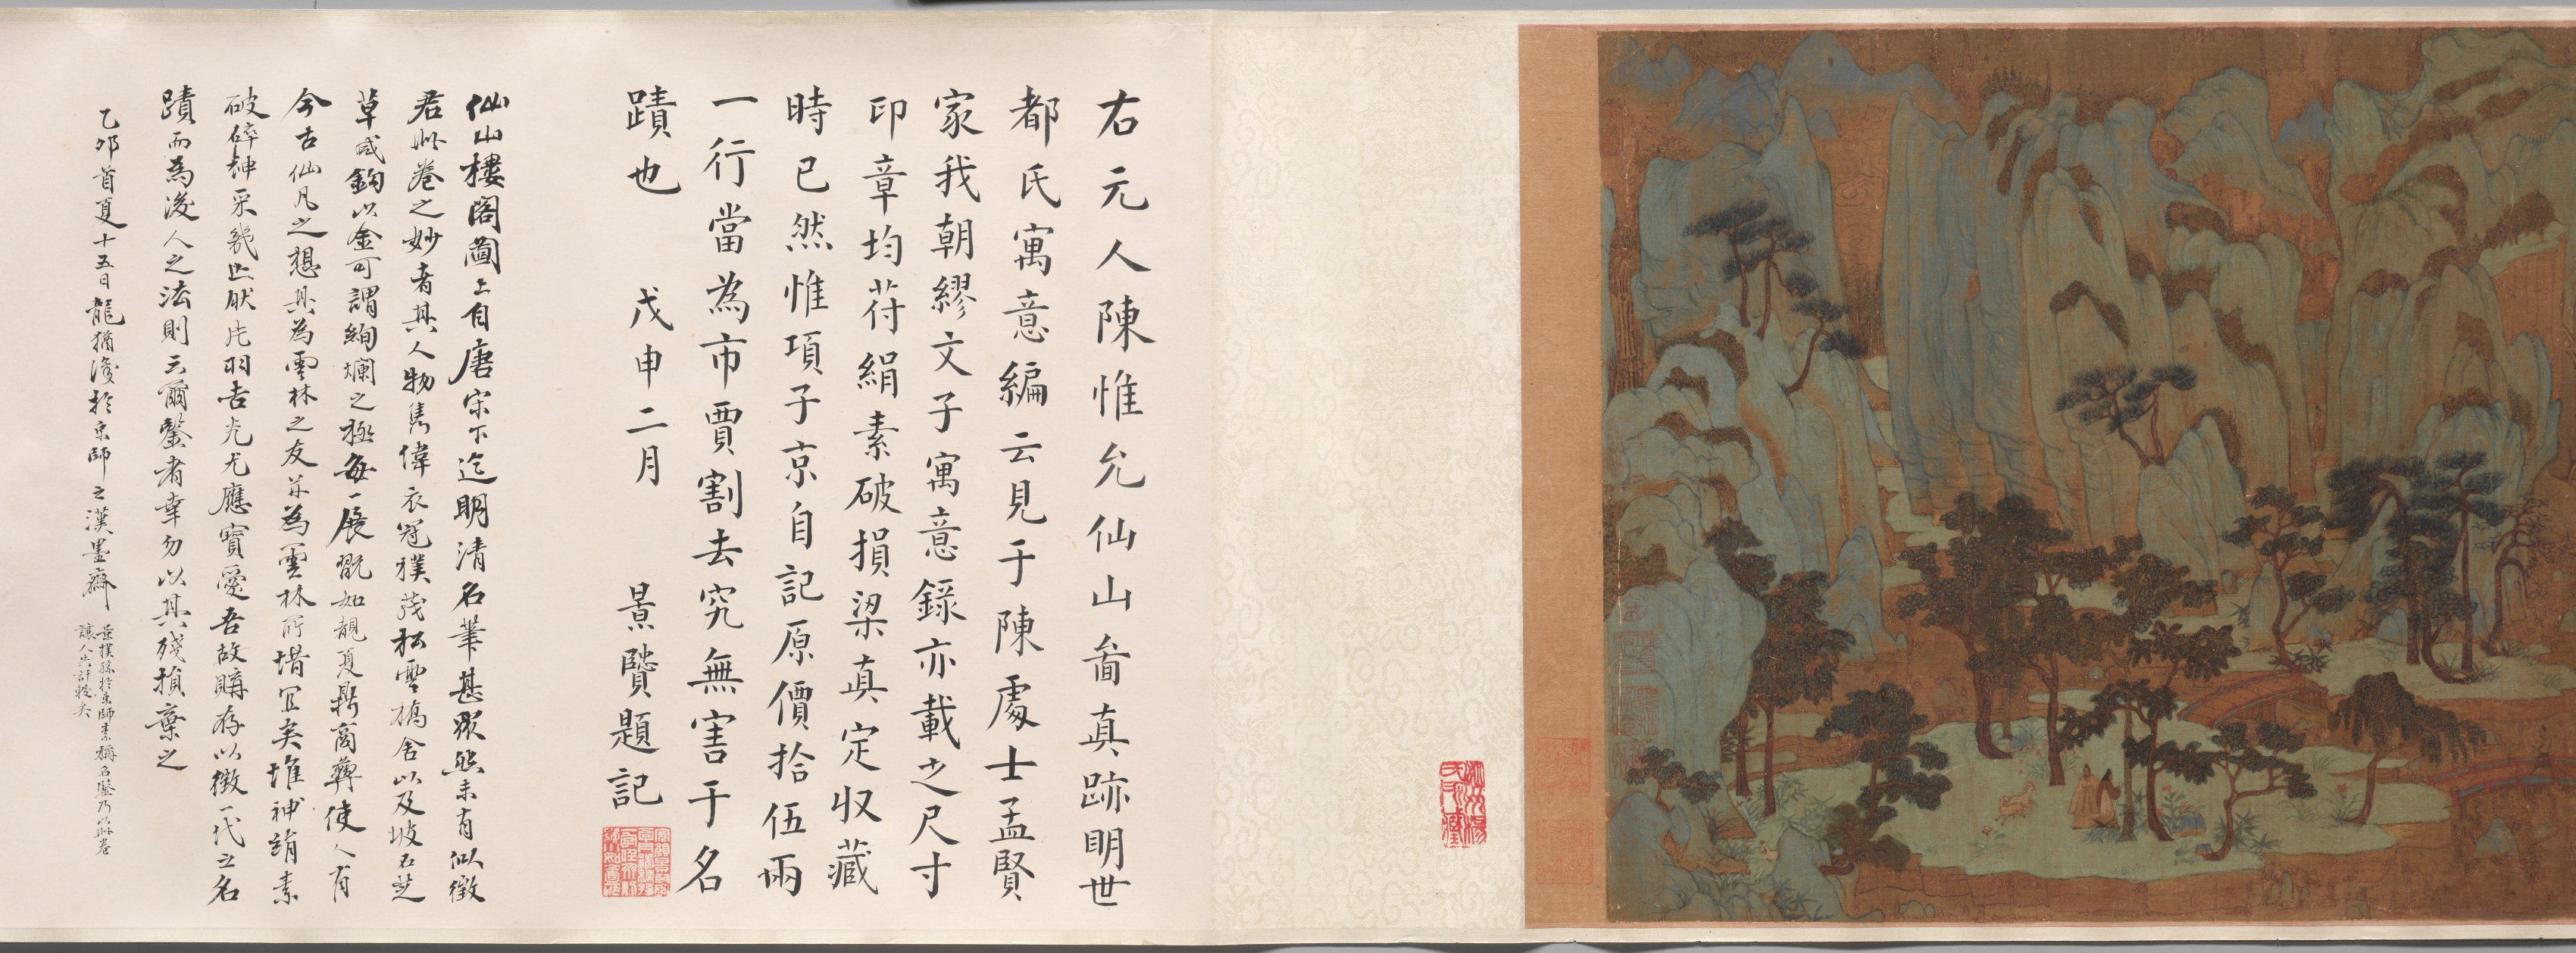 右元人陳惟允仙山啚真跡明世
都氏寓意編云見于陳處士孟賢
家我朝繆文子寓意錄亦載之尺寸
印章均符絹素破損梁真定収藏
時已然惟項子京自記原價拾伍兩
一行當為市賈割去究無害于名
蹟也 戊申二月 景賢題記
仙山樓閣圖上自唐宋下迄明清名筆甚眾然未有似徵
君此卷之妙者其人物雋偉衣冠樸茂松雲橋舍以及坡石芝
草咸鉤以金可謂絢爛之極每一展翫如親夏鼎商彝使人有
今古仙凡之想其為雲林之友并為雲林所
破碎神采
蹟而為後人之法則云爾鑒者幸勿以其殘損棄之
乙卯首夏十五日龍猶後於京師之漢墨齋